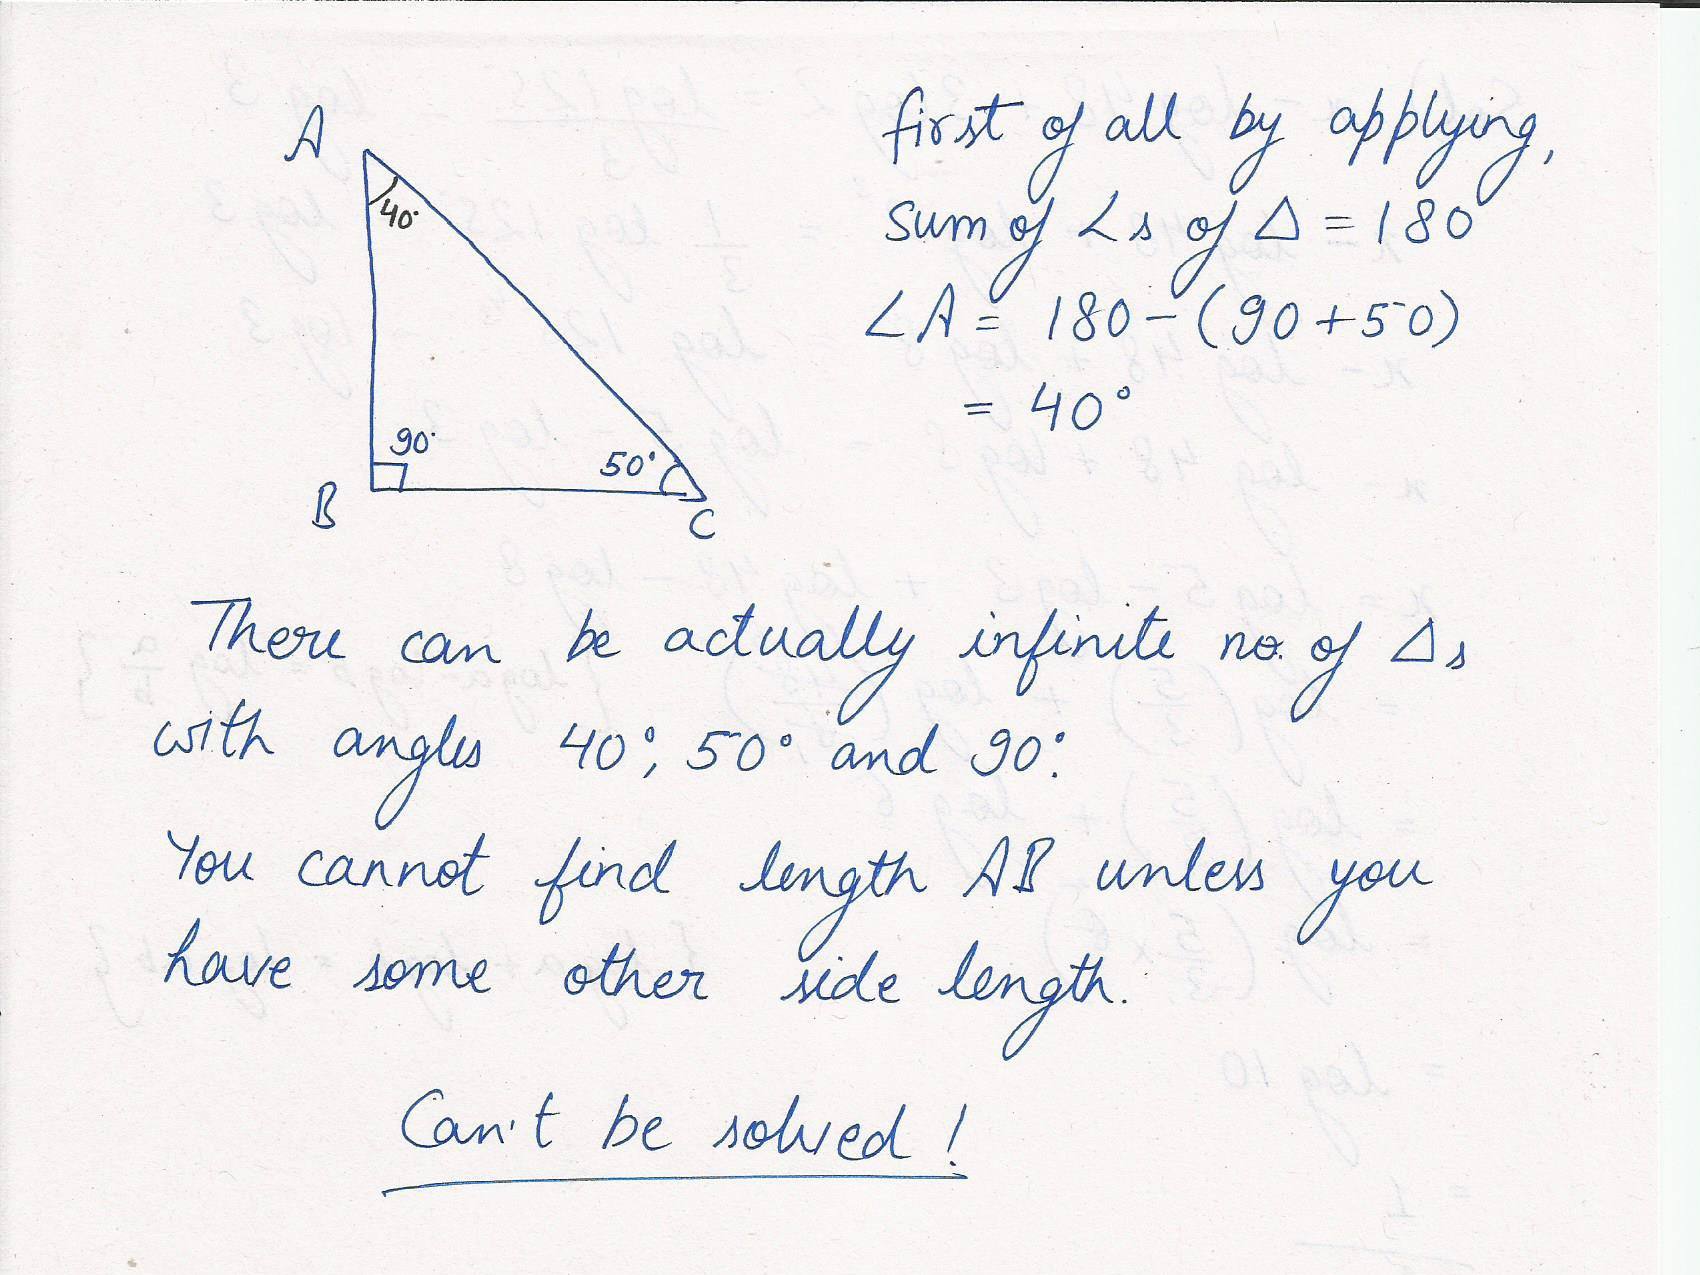 A
40°
90°
50°
B
C
first of all by applying,
sum of ∠s of △ = 180
∠A = 180 - (90 + 50)
= 40°
There can be actually infinite no. of △s
with angles 40°, 50° and 90°.
You cannot find length AB unless you
have some other side length.
Can't be solved!